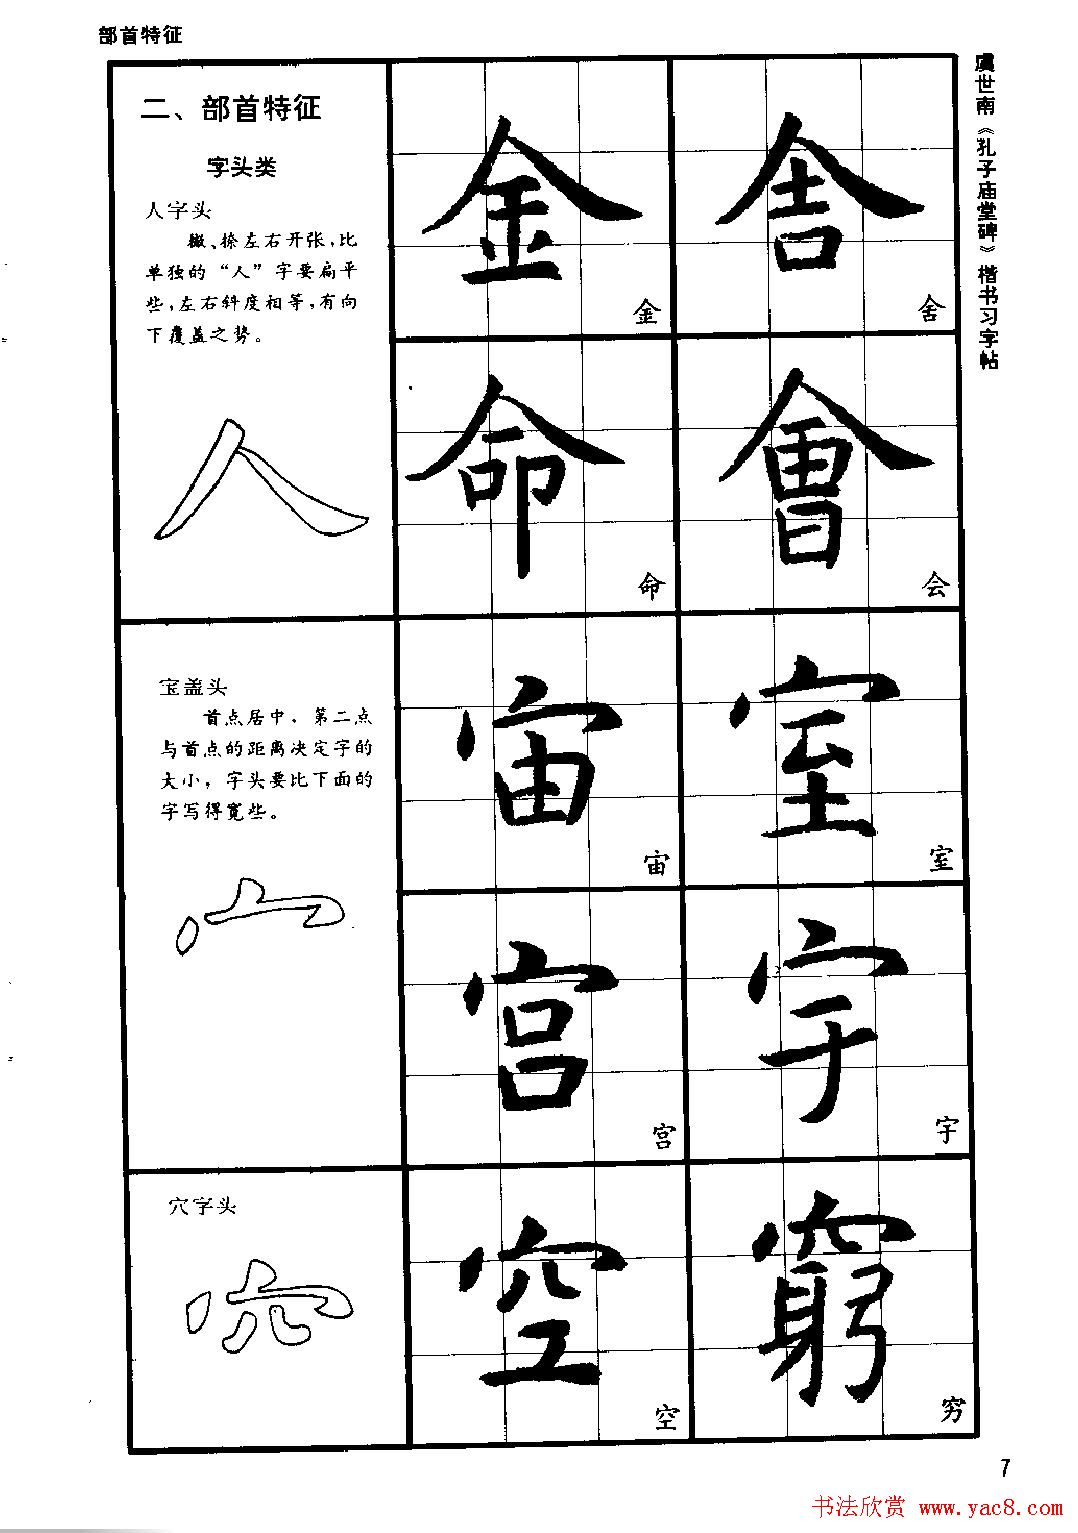 部首特征
二、部首特征
字头类
人字头
撇、捺左右开张,比
单独的“人”字要扁平
些,左右斜度相等,有向
下覆盖之势。
人
金
金
舍
舍
命
命
會
会
宝盖头
首点居中，第二点
与首点的距离决定字的
大小，字头要比下面的
字写得宽些。
宀
宙
宙
室
室
宫
宫
宇
宇
穴字头
空
空
窮
穷
虞世南《孔子庙堂碑》楷书习字帖
7
书法欣赏 www.yac8.com